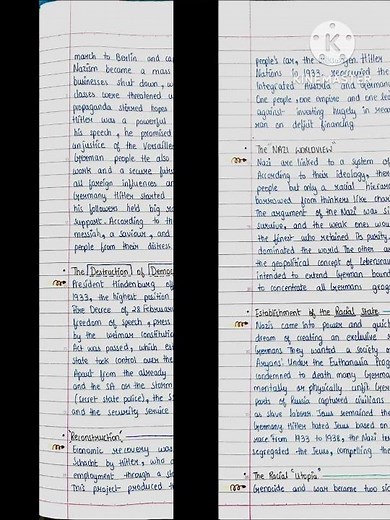 march to Berlin and ca
Nazism became a mass
businesses shut down, w
classes were threatened
propaganda stirred hopes
Hitler was a powerful
his speech, he promised
unjustice of the Versailles
German people. He also
work and a secure futu
all foreign influences an
Germany. Hitler started
his followers held big
support. According to th
messiah, a saviour, and
people from their distress.
The Destruction of Democ
President Hindenburg of
1933, the highest position
Fire Decree of 28 February
freedom of speech, press
by the weimar constitution
Act was passed, which est
State took control over the
Apart from the already
and the SA or the Storm
(secret state police), the S
and the security service
"Reconstruction"
Economic recovery was
Schacht by Hitler, who
employment through a sta
This project produced th
people's car, the Hitler
Nations in 1933, reoccupied the
integrated Austria and Germany
One people, one empire and one lea
against investing hugely in rear
ran on deficit financing.
The "NAZI WORLDVIEW"
Nazi are linked to a system of
According to their ideology, there
people but only a racial hierarc
borrowed from thinkers like Charl
The argument of the Nazi was sim
survive, and the weak ones wou
the finest who retained its purity,
dominated the world. The other
the geopolitical concept of Lebensrau
intended to extend German bound
to concentrate all Germans geogr
Establishment of the Racial State
Nazis came into power and quick
dream of creating an exclusive r
Germans. They wanted a society of
Aryans'. Under the Euthanasia Prog
condemned to death many German
mentally or physically unfit Germ
parts of Russia captured civilians
as slave labour. Jews remained the
Germany. Hitler hated Jews based on
race. From 1933 to 1938, the Nazi ter
segregated the Jews, compelling the
The Racial "Utopia"
Genocide and war became two sid
KINEMASTER